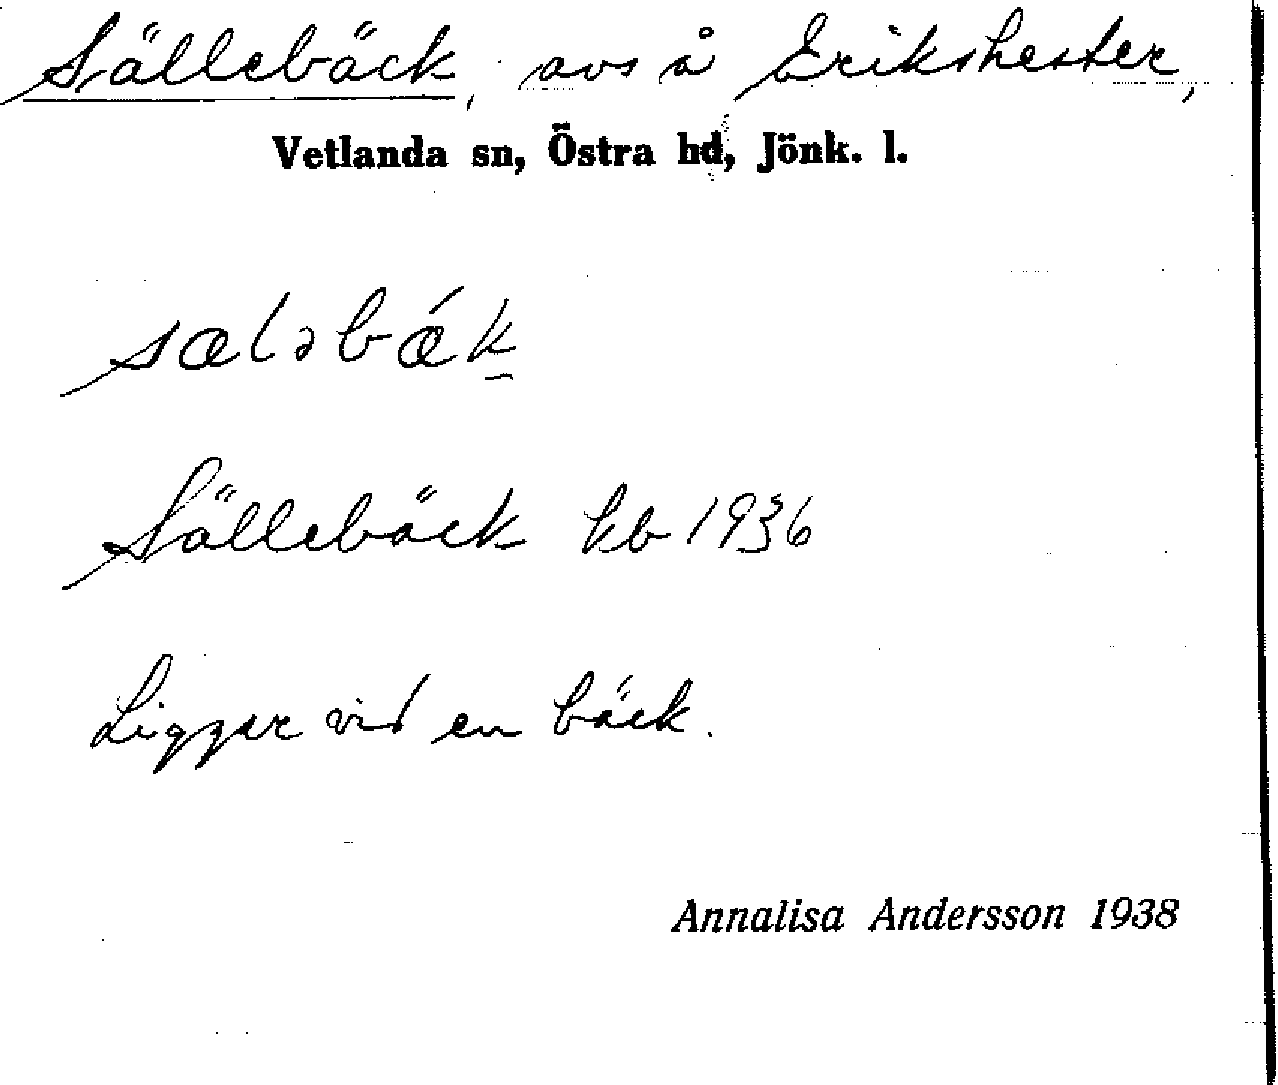 Sällebäck, avs å Erikshester,
Vetlanda sn, Östra hd, Jönk. l.
sæləbǽk
Sällebäck kb 1936
Ligger vid en bäck.
Annalisa Andersson 1938